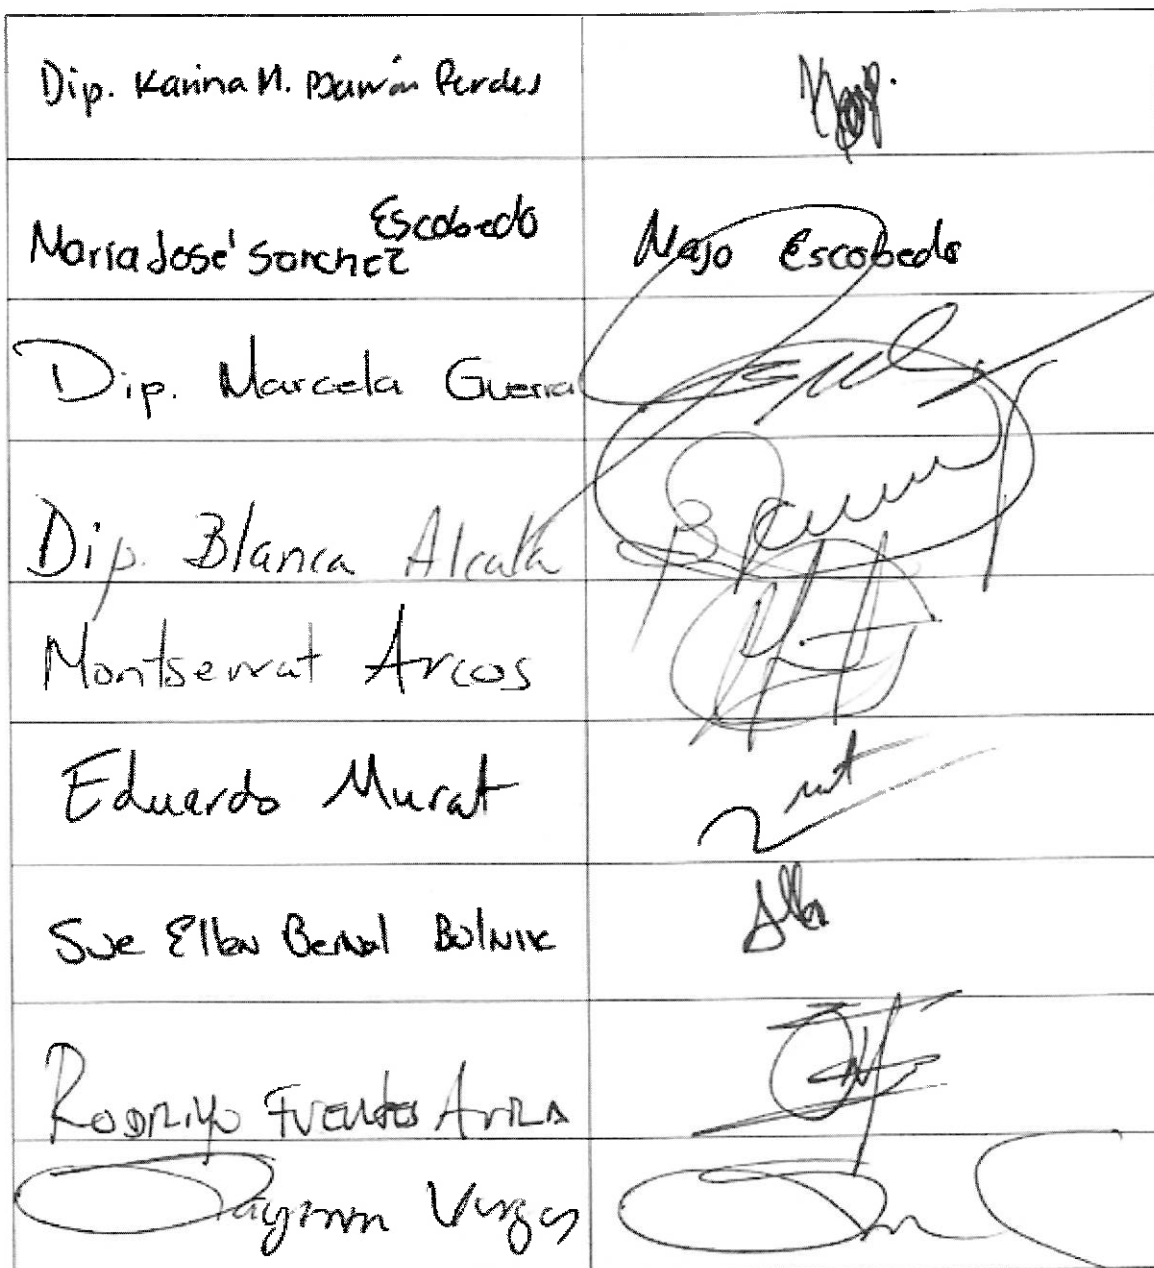 Dip. Karina M. Barrón Perales
María José Sánchez Escobedo
Majo Escobedo
Dip. Marcela Guerra
Dip. Blanca Alcalá
Montserrat Arcos
Eduardo Murat
Sue Ellen Bernal Bolnik
Rodrigo Fuentes Avila
Vargas